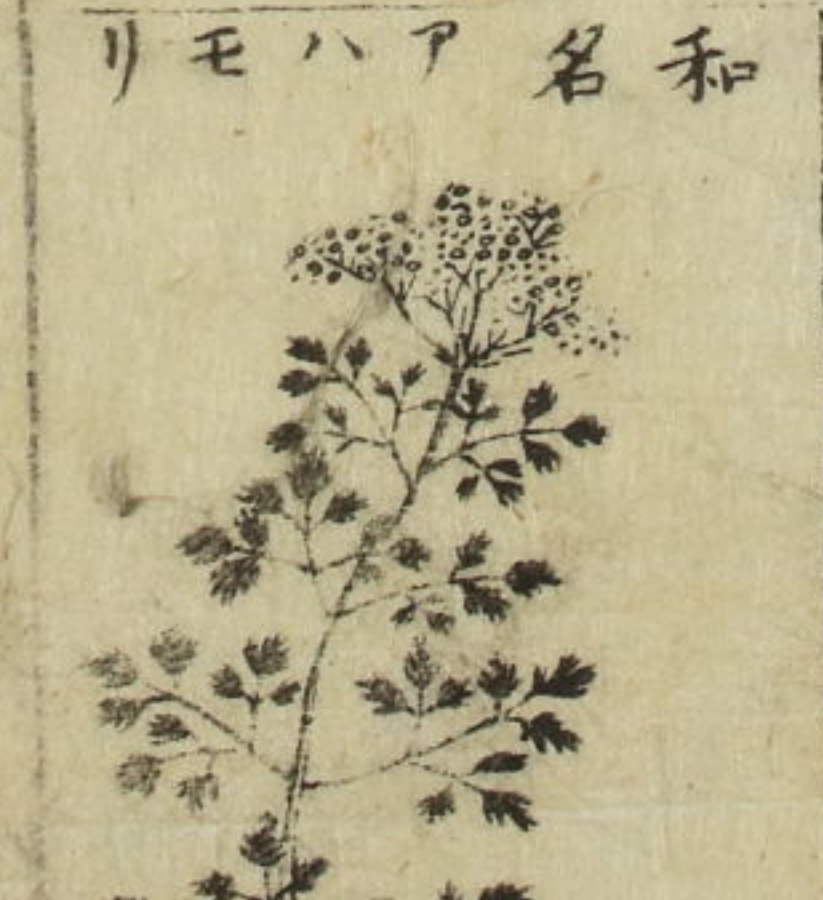 和名 アハモリ